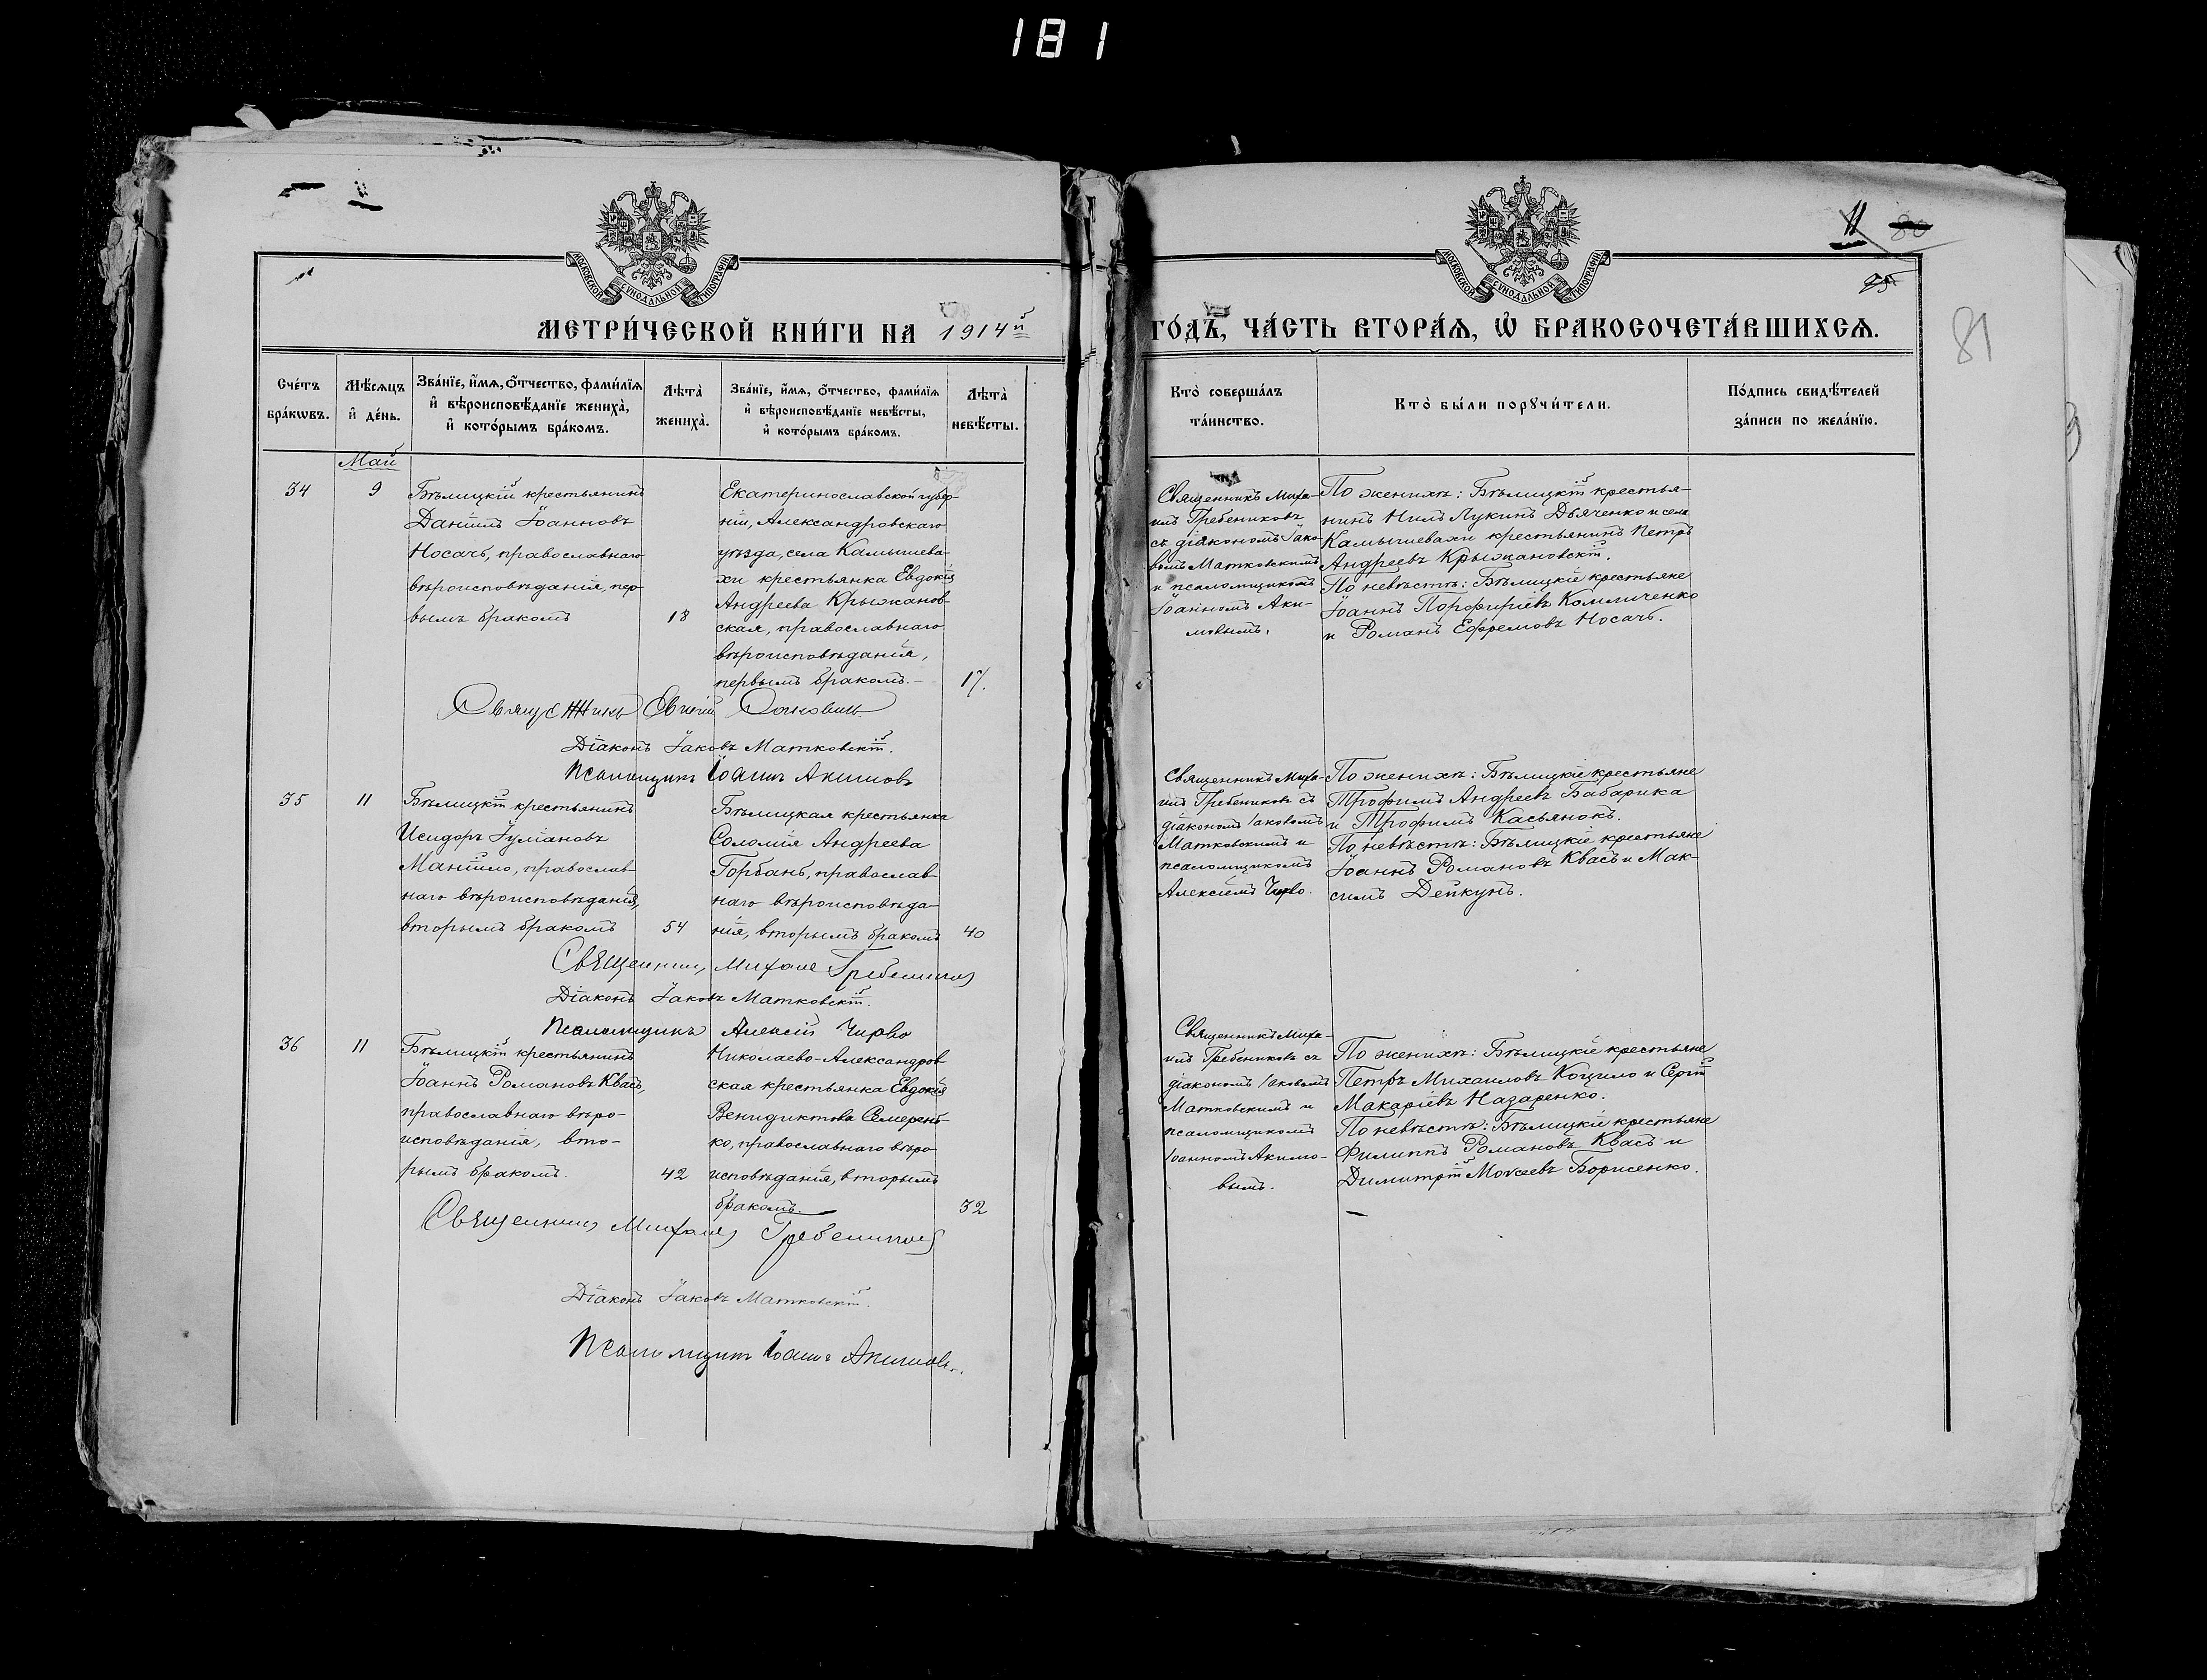 181
11
80
25
81
МОСКОВСКОЙ СѴНОДАЛЬНОЙ ТИПОГРАФІИ
МОСКОВСКОЙ СѴНОДАЛЬНОЙ ТИПОГРАФІИ
МЕТРИ́ЧЕСКОЙ КНИ́ГИ НА 1914й ГО́ДЪ, ЧА́СТЬ ВТОРА́Ѧ, Ѡ҆ БРАКОСОЧЕТА́ВШИХСѦ.
Сче́тъ бра́кѡвъ.
Мѣ́сѧцъ и҆ де́нь.
Зва́нїе, и҆́мѧ, ѻ҆́тчество, фами́лїѧ и҆ вѣроисповѣ́данїе жениха̀, и҆ кото́рымъ бра́комъ.
Лѣта̀ жениха̀.
Зва́нїе, и҆́мѧ, ѻ҆́тчество, фами́лїѧ и҆ вѣроисповѣ́данїе невѣ́сты, и҆ кото́рымъ бра́комъ.
Лѣта̀ невѣ́сты.
Кто̀ соверша́лъ та́инство.
Кто̀ бы́ли порꙋчи́тели.
По́дпись свидѣ́телей за́писи по жела́нїю.
Май
34
9
Бѣлицкій крестьянинъ
Даніилъ Іоанновъ
Носачъ, православнаго
вѣроисповѣданія, пер-
вымъ бракомъ
18
Екатеринославской губер-
ніи, Александровскаго
уѣзда, села Камышева-
хи крестьянка Евдокія
Андреева Крыжанов-
ская, православнаго
вѣроисповѣданія,
первымъ бракомъ.-
17.
Священникъ Миха-
илъ Гребениковъ
съ діакономъ Іако-
вомъ Матковскимъ
и псаломщикомъ
Іоанномъ Аки-
мовымъ.
По женихѣ: Бѣлицкій крестья-
нинъ Нилъ Лукинъ Дьяченко и села
Камышевахи крестьянинъ Петръ
Андреевъ Крыжановскій.
По невѣстѣ: Бѣлицкіе крестьяне
Іоаннъ Порфиріевъ Комличенко
и Романъ Ефремовъ Носачъ.
Священникъ
Діаконъ Іаковъ Матковскій.
Псаломщикъ Іоаннъ Акимовъ
35
11
Бѣлицкій крестьянинъ
Исидоръ Іуліановъ
Маніило, православ-
наго вѣроисповѣданія,
вторымъ бракомъ
54
Бѣлицкая крестьянка
Соломія Андреева
Горбань, православ-
наго вѣроисповѣда-
нія, вторымъ бракомъ
40
Священникъ Миха-
илъ Гребениковъ съ
діакономъ Іаковомъ
Матковскимъ и
псаломщикомъ
Алексіемъ Чирво.
По женихѣ: Бѣлицкіе крестьяне
Трофимъ Андреевъ Бабарика
и Трофимъ Касьянокъ.
По невѣстѣ: Бѣлицкіе крестьяне
Іоаннъ Романовъ Квасъ и Мак-
симъ Дейкунъ.
Священникъ Михаилъ Гребениковъ
Діаконъ Іаковъ Матковскій.
Псаломщикъ Алексій Чирво
36
11
Бѣлицкій крестьянинъ
Іоаннъ Романовъ Квасъ,
православнаго вѣро-
исповѣданія, вто-
рымъ бракомъ.
42
Николаево-Александров
ская крестьянка Евдокія
Венидиктова Семерень-
ко, православнаго вѣро
исповѣданія, вторымъ
бракомъ.
32
Священникъ Миха-
илъ Гребениковъ съ
діакономъ Іаковомъ
Матковскимъ и
псаломщикомъ
Іоанномъ Акимо-
вымъ.
По женихѣ: Бѣлицкіе крестьяне
Петръ Михаиловъ Коцило и Сергій
Макаріевъ Назаренко.
По невѣстѣ: Бѣлицкіе крестьяне
Филиппъ Романовъ Квасъ и
Димитрій Моѵсеевъ Борисенко.
Священникъ Михаилъ Гребениковъ
Діаконъ Іаковъ Матковскій.
Псаломщикъ Іоаннъ Акимовъ.